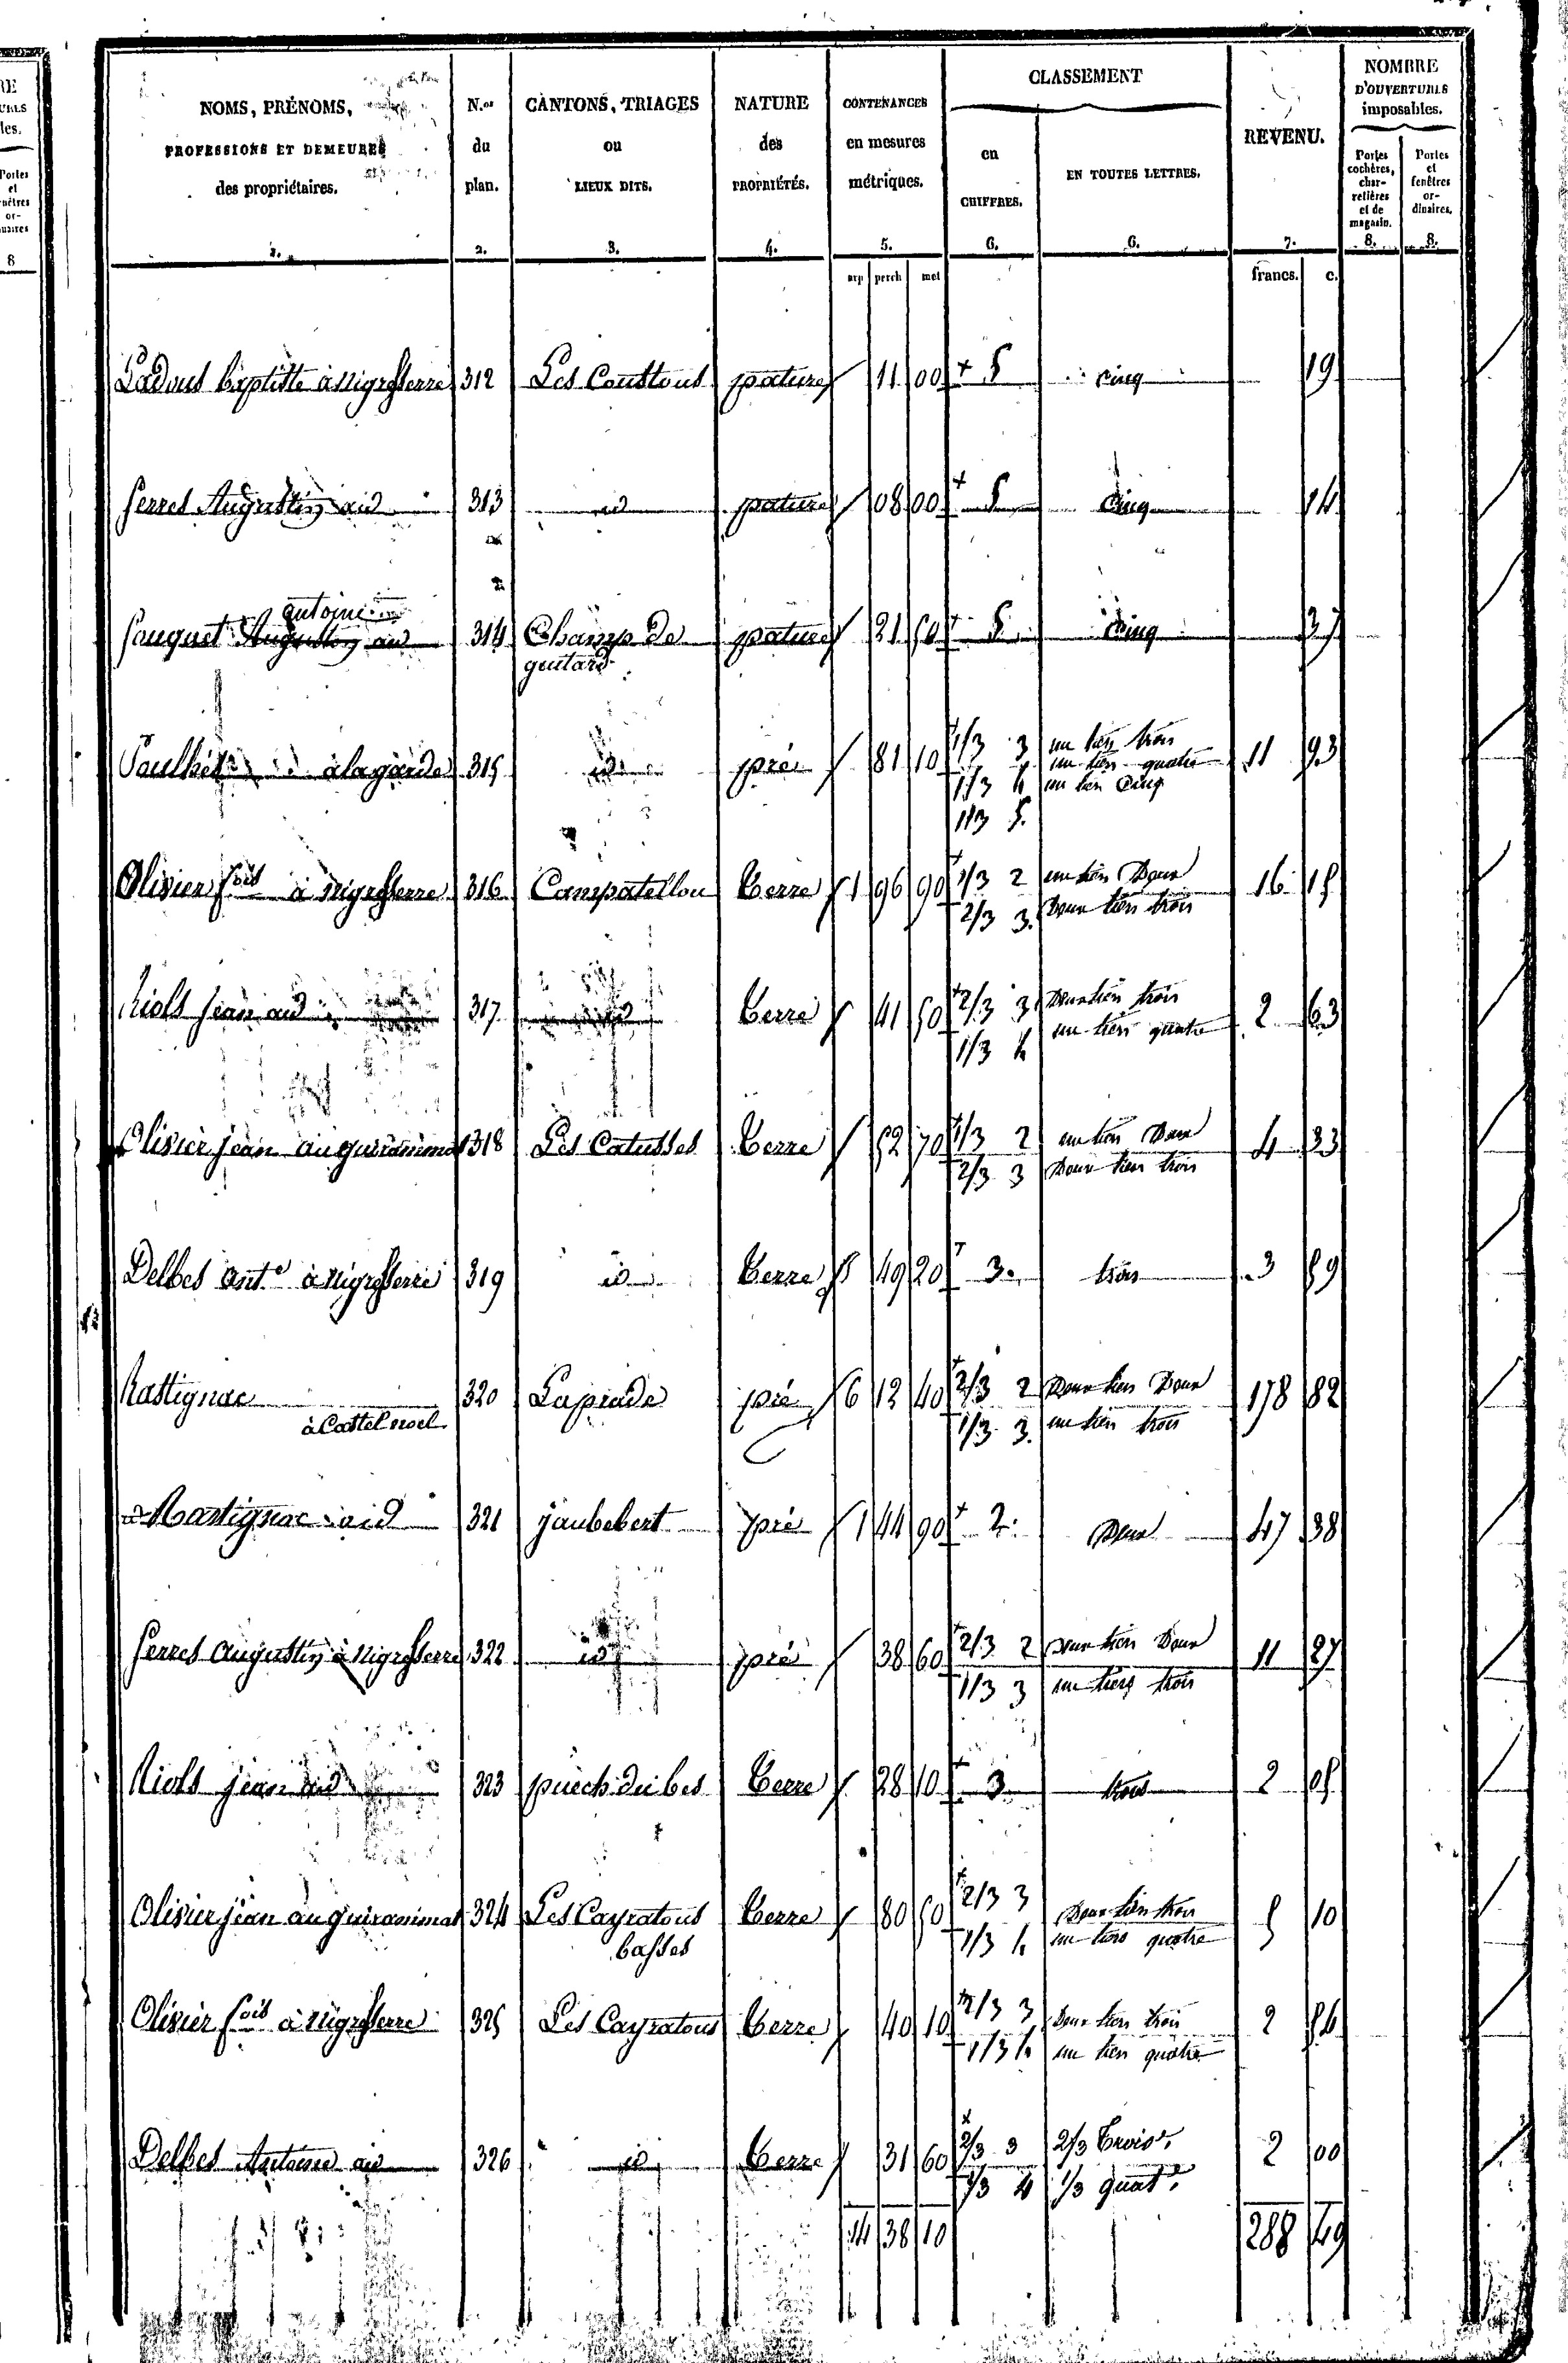 NOMS, PRÉNOMS,
PROFESSIONS ET DEMEURES
des propriétaires.
1.
N.os
du
plan.
2.
CANTONS, TRIAGES
ou
LIEUX DITS.
3.
NATURE
des
PROPRIÉTÉS.
4.
CONTENANCES
en mesures
métriques.
5.
CLASSEMENT
en
CHIFFRES.
6.
EN TOUTES LETTRES.
6.
REVENU.
7.
NOMBRE
D'OUVERTURES
imposables.
Portes
cochères,
char-
retières
et de
magasin.
8.
Portes
et
fenêtres
or-
dinaires.
8.
arp perch met
francs. c.
Baptiste à Nigresserre 312 Les Coustous pature 11 00 5 cinq 19
Serres Augustin aud 313 id pature 08 00 5 Cinq 14
antoine
Fouquet Augustin aud 314 Champ de pature 21 50 5 Cinq 37
guitard
Paulhet à la garde 315 id pré 81 10 1/3 3 un tiers trois 11 93
1/3 4 un tiers quatre
1/3 5 un tiers Cinq
Olivier fois à Nigresserre 316 Campatellou Terre 1 96 90 1/3 2 un tiers Deux 16 15
2/3 3 Deux tiers trois
Riols Jean aud 317 id Terre 41 50 2/3 3 Deux tiers trois 2 63
1/3 4 un tiers quatre
Olivier jean au guiranimat 318 Les Catusses Terre 52 70 1/3 2 un tiers Deux 4 33
2/3 3 Deux tiers trois
Delbes ant.e à Nigresserre 319 id Terre 49 20 3 trois 3 59
Rastignac 320 Lapiade pré 6 12 40 2/3 2 Deux tiers Deux 178 82
à Castelnoel 1/3 3 un tiers trois
Rastignac aid 321 jaubebert pré 1 44 90 2 Deux 47 38
Serres Augustin à Nigresserre 322 id pré 38 60 2/3 2 Deux tiers Deux 11 27
1/3 3 un tiers trois
Riols jean aud 323 puech du bes Terre 28 10 3 trois 2 05
Olivier jean au guiranimat 324 Les Cayratous Terre 80 50 2/3 3 Deux tiers trois 5 10
basses 1/3 4 un tiers quatre
Olivier fois à Nigresserre 325 Les Cayratous Terre 40 10 2/3 3 Deux tiers trois 2 54
1/3 4 un tiers quatre
Delbes Antoine aud 326 id Terre 31 60 2/3 3 2/3 Trois 2 00
1/3 4 1/3 quat.e
14 38 10 288 49